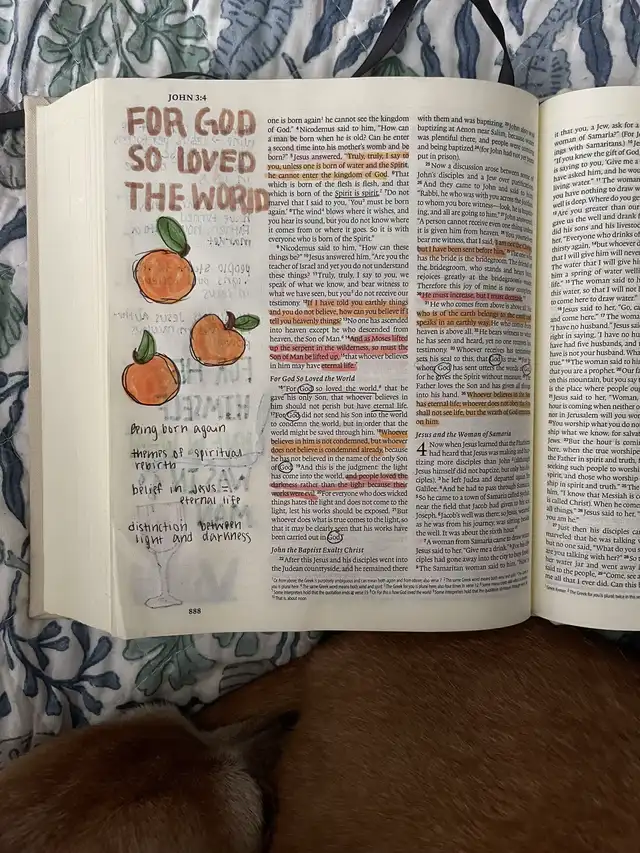 JOHN 3:4
FOR GOD
SO LOVED
THE WORLD
Being born again
themes of spiritual
rebirth
belief in Jesus =
eternal life
distinction between
light and darkness
888
one is born again he cannot see the kingdom
of God." 4 Nicodemus said to him, "How can
a man be born when he is old? Can he enter
a second time into his mother's womb and be
born?" 5 Jesus answered, "Truly, truly, I say to
you, unless one is born of water and the Spirit,
he cannot enter the kingdom of God. 6 That
which is born of the flesh is flesh, and that
which is born of the Spirit is spirit. 7 Do not
marvel that I said to you, 'You must be born
again.' 8 The wind blows where it wishes, and
you hear its sound, but you do not know where
it comes from or where it goes. So it is with
everyone who is born of the Spirit."
9 Nicodemus said to him, "How can these
things be?" 10 Jesus answered him, "Are you the
teacher of Israel and yet you do not understand
these things? 11 Truly, truly, I say to you, we
speak of what we know, and bear witness to
what we have seen, but you do not receive our
testimony. 12 If I have told you earthly things
and you do not believe, how can you believe if I
tell you heavenly things? 13 No one has ascended
into heaven except he who descended from
heaven, the Son of Man. 14 And as Moses lifted
up the serpent in the wilderness, so must the
Son of Man be lifted up, 15 that whoever believes
in him may have eternal life.
For God So Loved the World
16 "For God so loved the world, that he
gave his only Son, that whoever believes in
him should not perish but have eternal life.
17 For God did not send his Son into the world
to condemn the world, but in order that the
world might be saved through him. 18 Whoever
believes in him is not condemned, but whoever
does not believe is condemned already, because
he has not believed in the name of the only Son
of God. 19 And this is the judgment: the light
has come into the world, and people loved the
darkness rather than the light because their
works were evil. 20 For everyone who does wicked
things hates the light and does not come to the
light, lest his works should be exposed. 21 But
whoever does what is true comes to the light, so
that it may be clearly seen that his works have
been carried out in God."
John the Baptist Exalts Christ
22 After this Jesus and his disciples went into
the Judean countryside, and he remained there
with them and was baptizing. 23 John also was
baptizing at Aenon near Salim, because water
was plentiful there, and people were coming
and being baptized 24 (for John had not yet been
put in prison).
25 Now a discussion arose between some of
John's disciples and a Jew over purification.
26 And they came to John and said to him,
"Rabbi, he who was with you across the Jordan,
to whom you bore witness—look, he is baptizing,
and all are going to him." 27 John answered,
"A person cannot receive even one thing unless
it is given him from heaven. 28 You yourselves
bear me witness, that I said, 'I am not the Christ,
but I have been sent before him.' 29 The one who
has the bride is the bridegroom. The friend of
the bridegroom, who stands and hears him,
rejoices greatly at the bridegroom's voice.
Therefore this joy of mine is now complete.
30 He must increase, but I must decrease."
31 He who comes from above is above all. He
who is of the earth belongs to the earth and
speaks in an earthly way. He who comes from
heaven is above all. 32 He bears witness to what
he has seen and heard, yet no one receives his
testimony. 33 Whoever receives his testimony
sets his seal to this, that God is true. 34 For he
whom God has sent utters the words of God,
for he gives the Spirit without measure. 35 The
Father loves the Son and has given all things
into his hand. 36 Whoever believes in the Son
has eternal life; whoever does not obey the Son
shall not see life, but the wrath of God remains
on him.
Jesus and the Woman of Samaria
4 Now when Jesus learned that the Pharisees
had heard that Jesus was making and baptizing
more disciples than John 2 (although
Jesus himself did not baptize, but only his disciples),
3 he left Judea and departed again for
Galilee. 4 And he had to pass through Samaria.
5 So he came to a town of Samaria called Sychar,
near the field that Jacob had given to his son
Joseph. 6 Jacob's well was there; so Jesus, wearied
as he was from his journey, was sitting beside
the well. It was about the sixth hour.
7 A woman from Samaria came to draw water.
Jesus said to her, "Give me a drink." 8 (For his
disciples had gone away into the city to buy food.)
9 The Samaritan woman said to him, "How is
it that you, a Jew, ask for a
woman of Samaria?" (For Je
ings with Samaritans.)
"If you knew the gift of God,
is saying to you, 'Give me a
have asked him, and he wou
living water." 11 The woman
you have nothing to draw w
deep. Where do you get
12 Are you greater than our
gave us the well and drank
did his sons and his livestoc
her, "Everyone who drinks of
thirsty again, 14 but whoever d
that I will give him will never
The water that I will give hi
him a spring of water wellin
life." 15 The woman said to hi
this water, so that I will not
to come here to draw water."
16 Jesus said to her, "Go, ca
come here." 17 The woman
"I have no husband." Jesus
right in saying, 'I have no hus
have had five husbands, and t
is not your husband. What
19 The woman said to him
that you are a prophet. 20 Our f
on this mountain, but you say t
is the place where people oug
21 Jesus said to her, "Woman,
hour is coming when neither o
nor in Jerusalem will you wors
You worship what you do not
what we know, for salvation
Jews. 23 But the hour is coming
here, when the true worshipe
the Father in spirit and truth, f
seeking such people to worship
spirit, and those who worship
in spirit and truth." 25 The
him, "I know that Messiah is c
is called Christ). When he come
all things." 26 Jesus said to her,
you am he."
27 Just then his disciples can
marveled that he was talking w
but no one said, "What do you s
are you talking with her?" 28 So
her water jar and went away i
said to the people, 29 "Come, see a
me all that I ever did. Can this